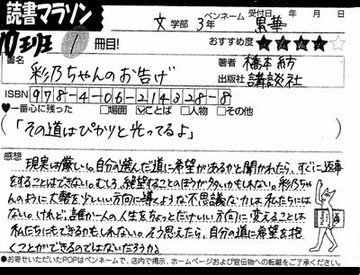 読書マラソン
文 学部 3年 ペンネーム 黒華 受付日 年 月 日
10冊班 1 冊目! おすすめ度 ★★★★☆
書名 彩乃ちゃんのお告げ 著者 橋本 紡
出版社 講談社
ISBN 978-4-06-214328-8
♥一番心に残った □場面 ☑ことば □人物 □その他
(「その道はぴかりと光ってるよ」 )
感想
現実は厳しい。自分の選んだ道に希望があるかと聞かれたら、すぐに返事
をすることはできない。むしろ、絶望することのほうが多いかもしれない。彩乃ちゃ
んのように大勢を少しいい方向に導くような不思議な力は私たちには
ない。けれど、誰か一人の人生をちょっとだけいい方向に変えることは
私たちにもできるかもしれない。そう思えたら、自分の道に希望を抱
くことができるのではないだろうか。
●お寄せいただいたPOPはペンネームで、店内で掲示、ホームページおよび宣伝物への転載をご了承ください。